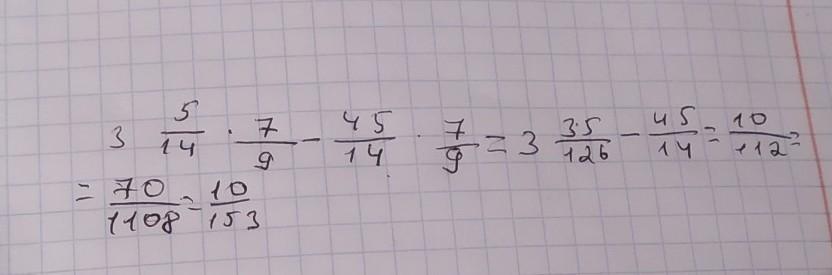 3 5/14 · 7/9 - 45/14 · 7/9 = 3 35/126 - 45/14 = 10/112 =
= 70/1108 = 10/153